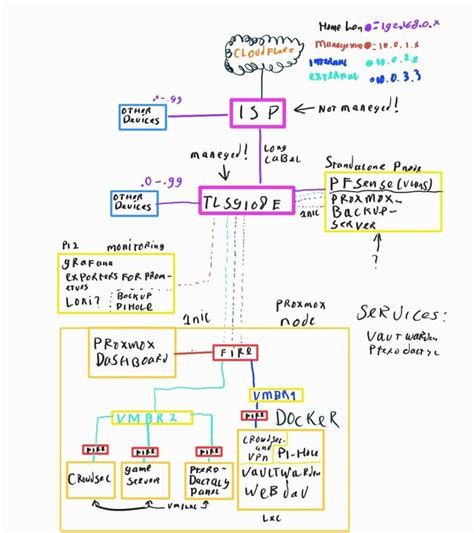 Home Lan = 192.168.0.x
= 10.0.1.x
internal = 10.0.2.x
external = 10.0.3.3
CLOUDFLARE
.0-.99
OTHER
DEVICES
ISP
Not maneyed!
LONG
LABEL
maneyed!
.0-.99
OTHER
DEVICES
TLSG108E
1NIC
Standalone
PFSense (VLANS)
PROXMOX-
BACKUP-
SERVER
?
PI2 monitoring
grafana
EXPORTERS FOR PROM-
ETUES
LOKI?
BACKUP
PIHOLE
1NIC
PROXMOX
node
SERVICES:
VAULTWARDEN
PROXMOX
DASHBOARD
FIRE
VMBR1
VMBR2
FIRE
DOCKER
FIRE
FIRE
FIRE
CROWDSEC
game
SERVER
PTERO-
DACTALY
PANEL
CROWDSEC-
and
VPN
PI-HOLE
VAULTWARDEN
WEBDAV
VM/LXC
LXC